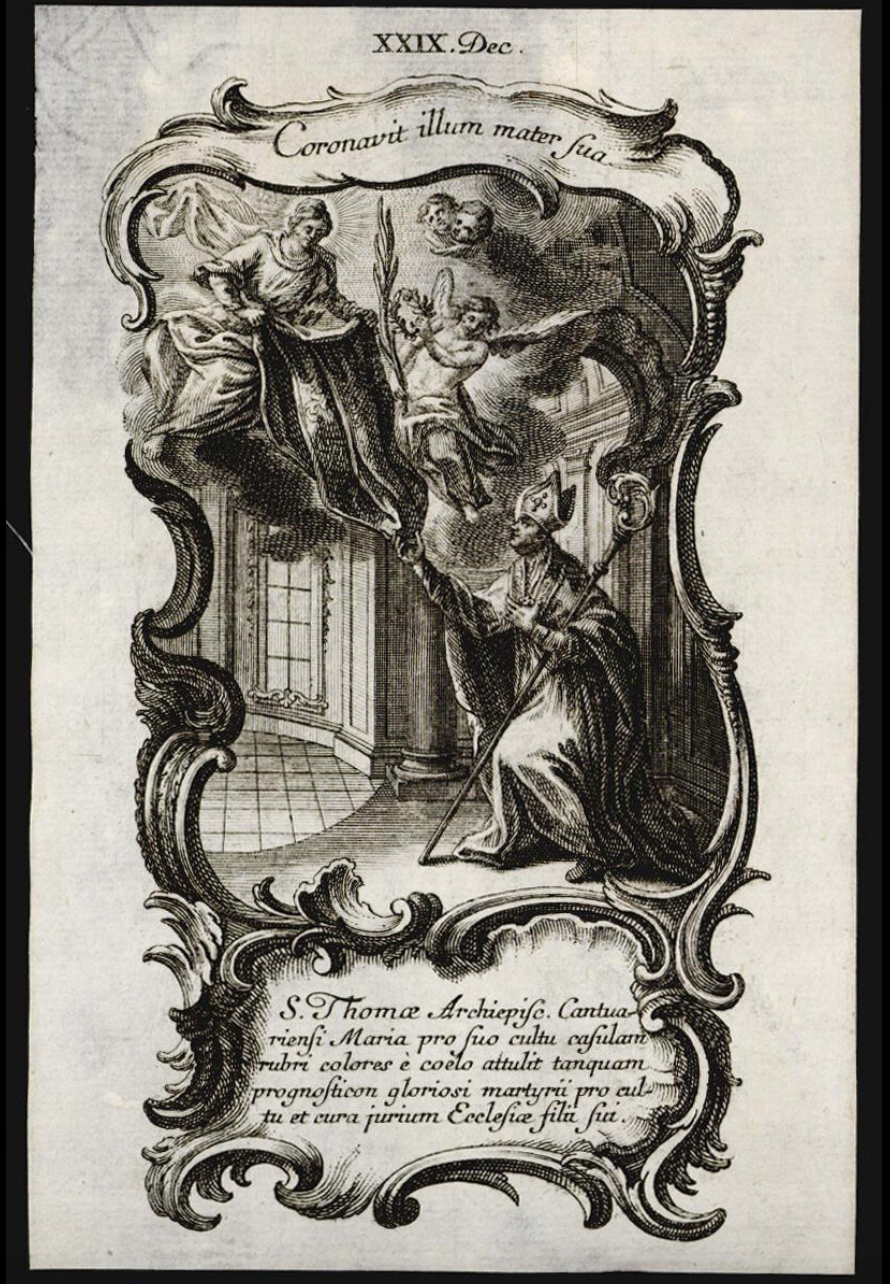 XXIX. Dec.
Coronavit illum mater ſua
S. Thomæ Archiepiſc. Cantua-
rienſi Maria pro ſuo cultu caſulam
rubri colores è coëlo attulit tanquam
prognoſticon glorioſi martyrii pro cul-
tu et cura jurium Eccleſiæ filii ſui.